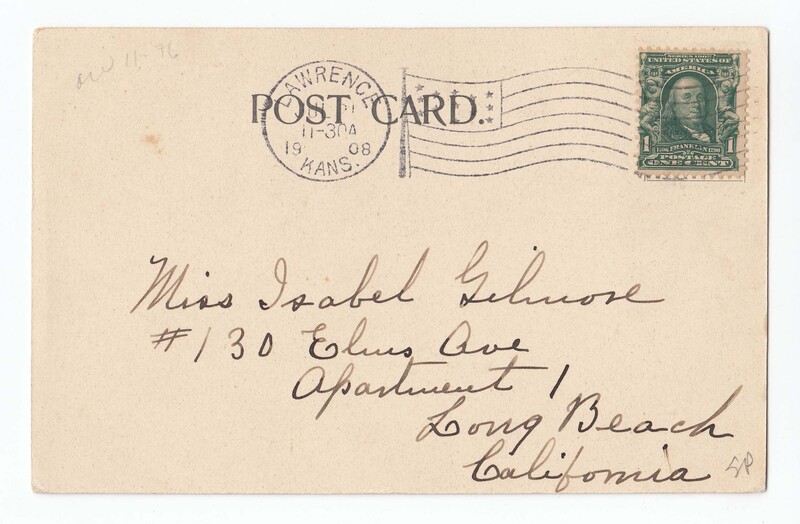 LAWRENCE
11-30A
19 08
KANS.
POST CARD.
SERIES 1902
UNITED STATES OF
AMERICA
1 FRANKLIN 1
POSTAGE
ONE CENT
Miss Isabel Gilmore
#130 Elms Ave
Apartment 1
Long Beach
California